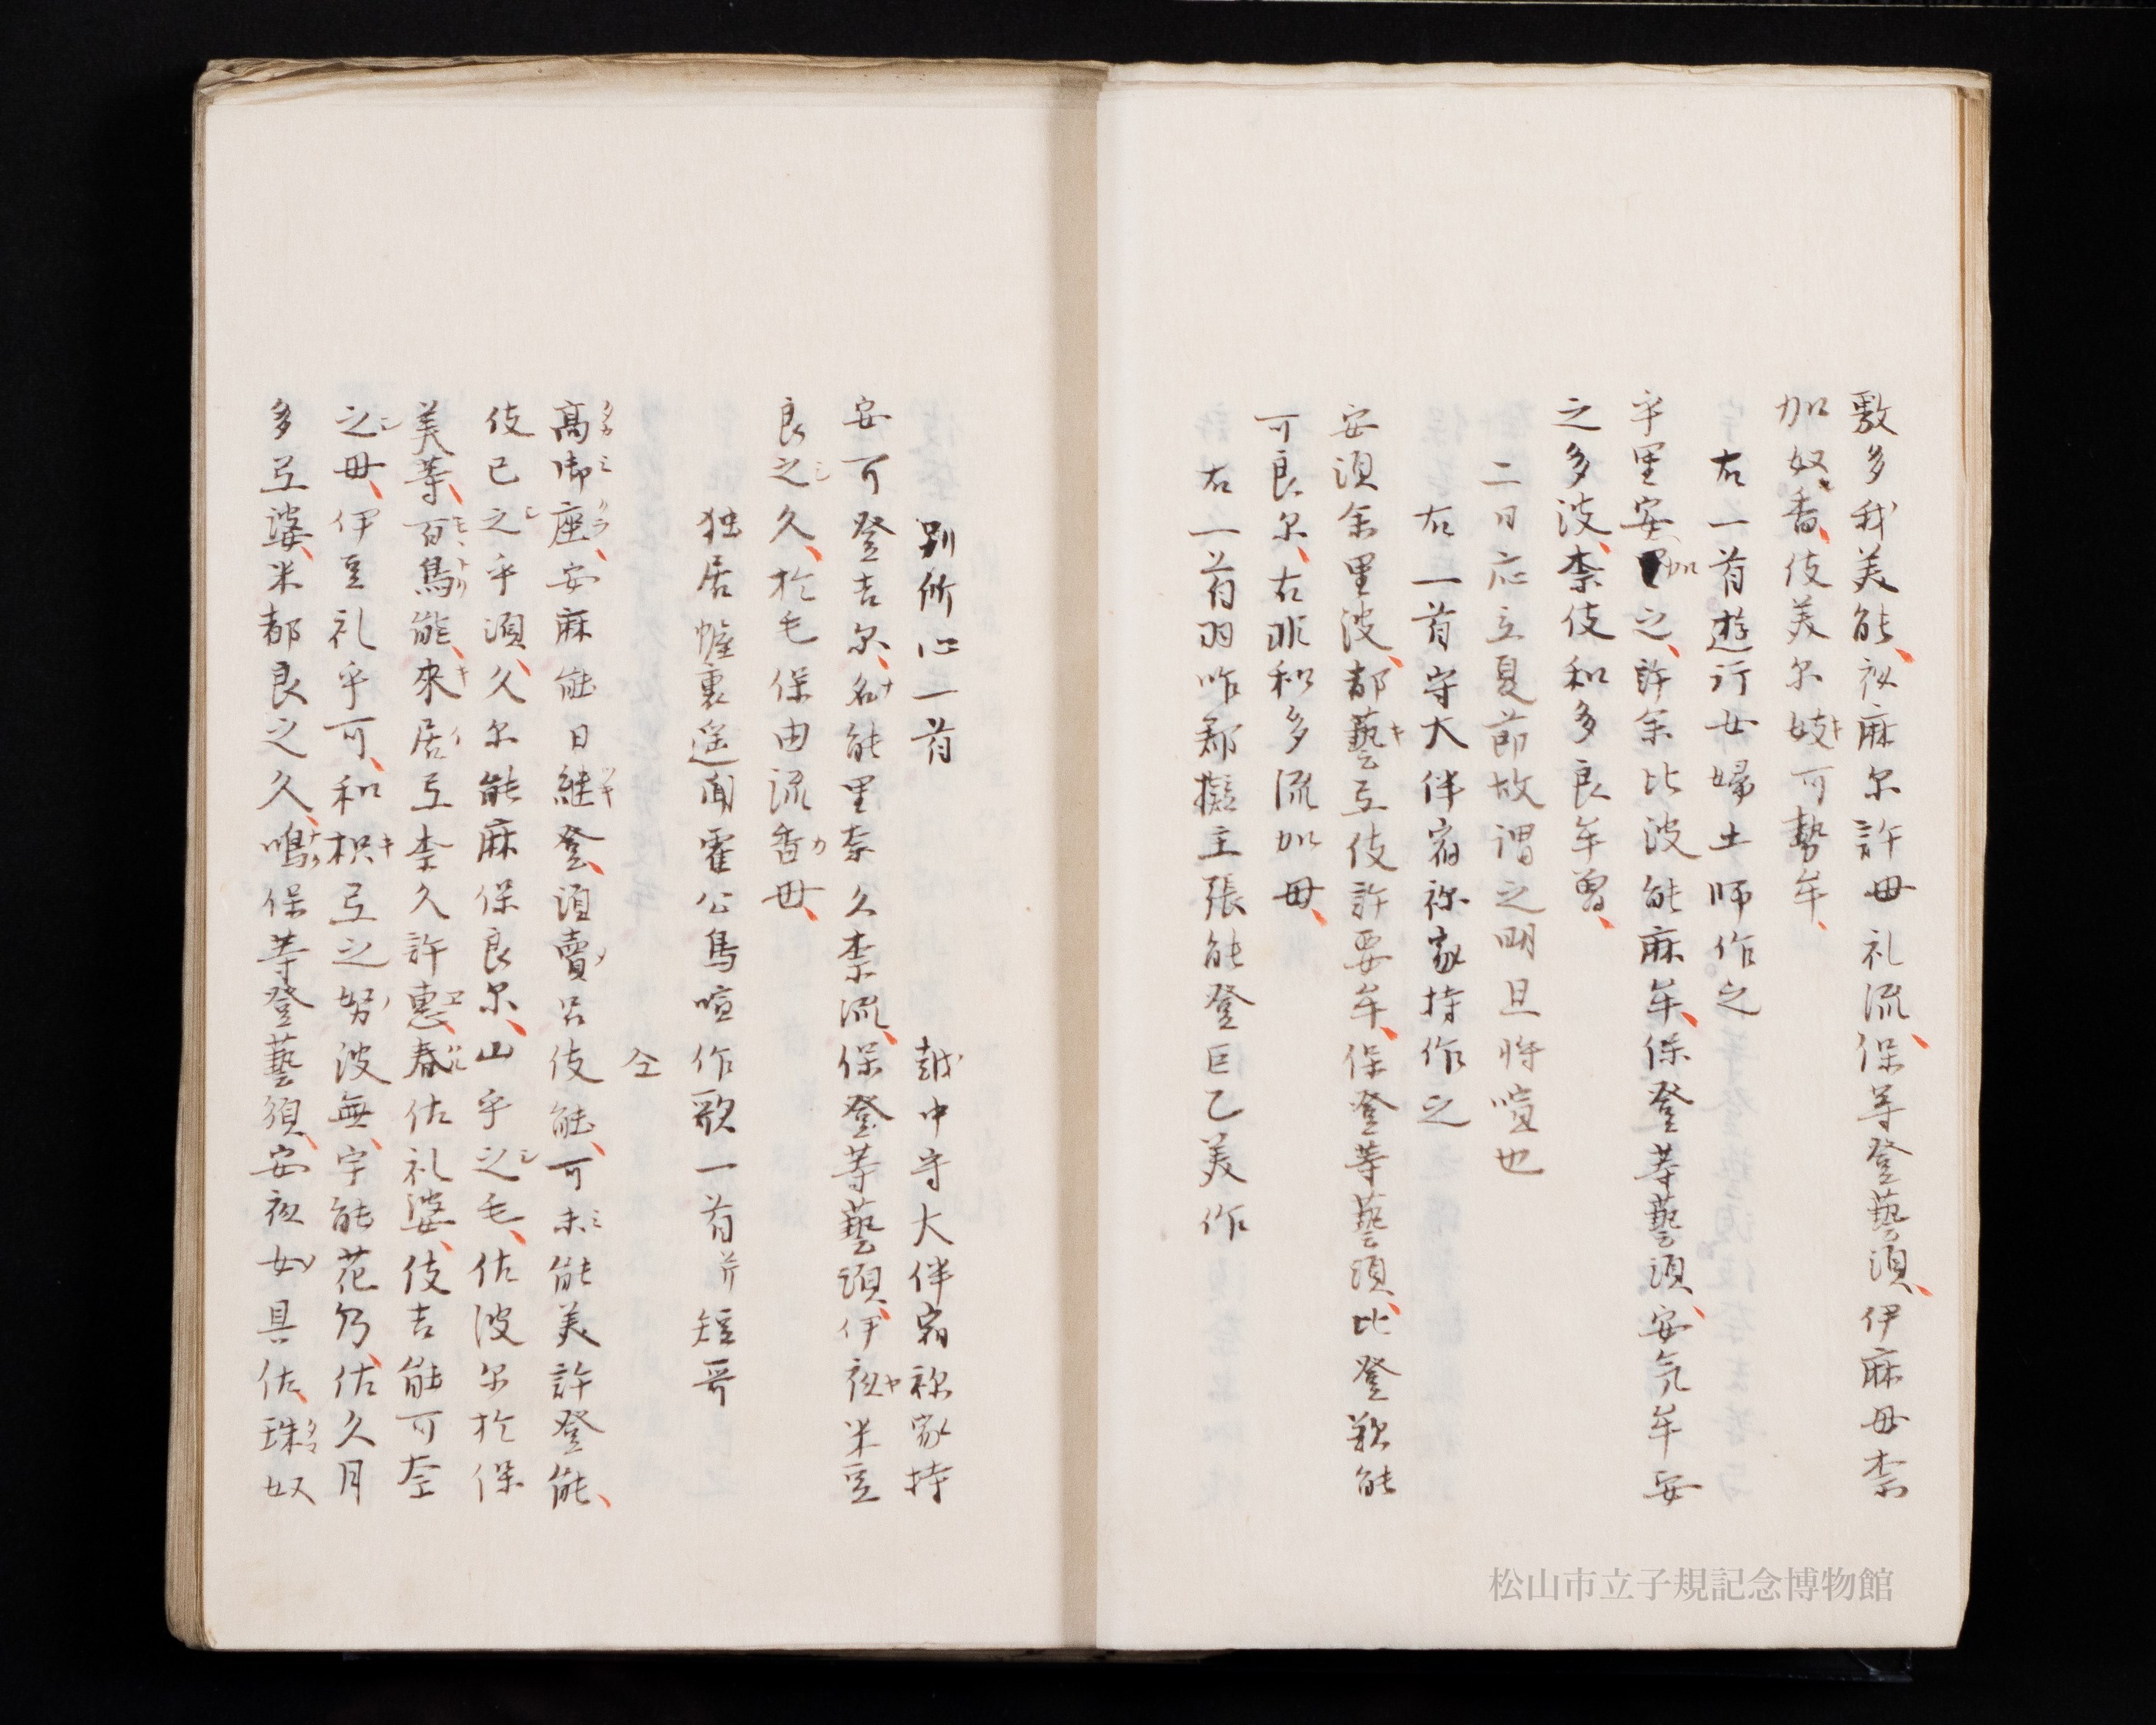 敷多我美能、祕麻尓許毋礼流、保等登藝湏、伊麻毋奈
加奴香、伎美尓妓可勢牟、
右一首遊行女婦土師作之
乎里安加之、許余比波能麻牟、保登等藝湏、安気牟安
之多波、奈伎和多良牟曽、
二日応立夏節故謂之明旦将喧也
右一首守大伴宿祢家持作之
安湏余里波、都藝弖伎許要牟、保登等藝湏、比登欲能
可良尓、古非和多流加毋、
右一首羽咋郡擬主張能登臣乙美作
別所心一首 越中守大伴宿祢家持
安可登吉尓、名能里奈久奈流、保登等藝湏、伊夜米豆
良之久、於毛保由流香毋、
独居幄裏遥聞霍公鳥喧作歌一首并短哥
仝
高御座、安麻能日継登、湏賣呂伎能、可未能美許登能、
伎己之乎湏、久尓能麻保良尓、山乎之毛、佐波尓於保
美等、百鳥能、來居弖奈久許恵、春佐礼婆、伎吉能可奈
之毋、伊豆礼乎可、和枳弖之努波無、宇能花乃、佐久月
多弖婆、米都良之久、鳴保等登藝須、安夜女具佐、珠奴
松山市立子規記念博物館